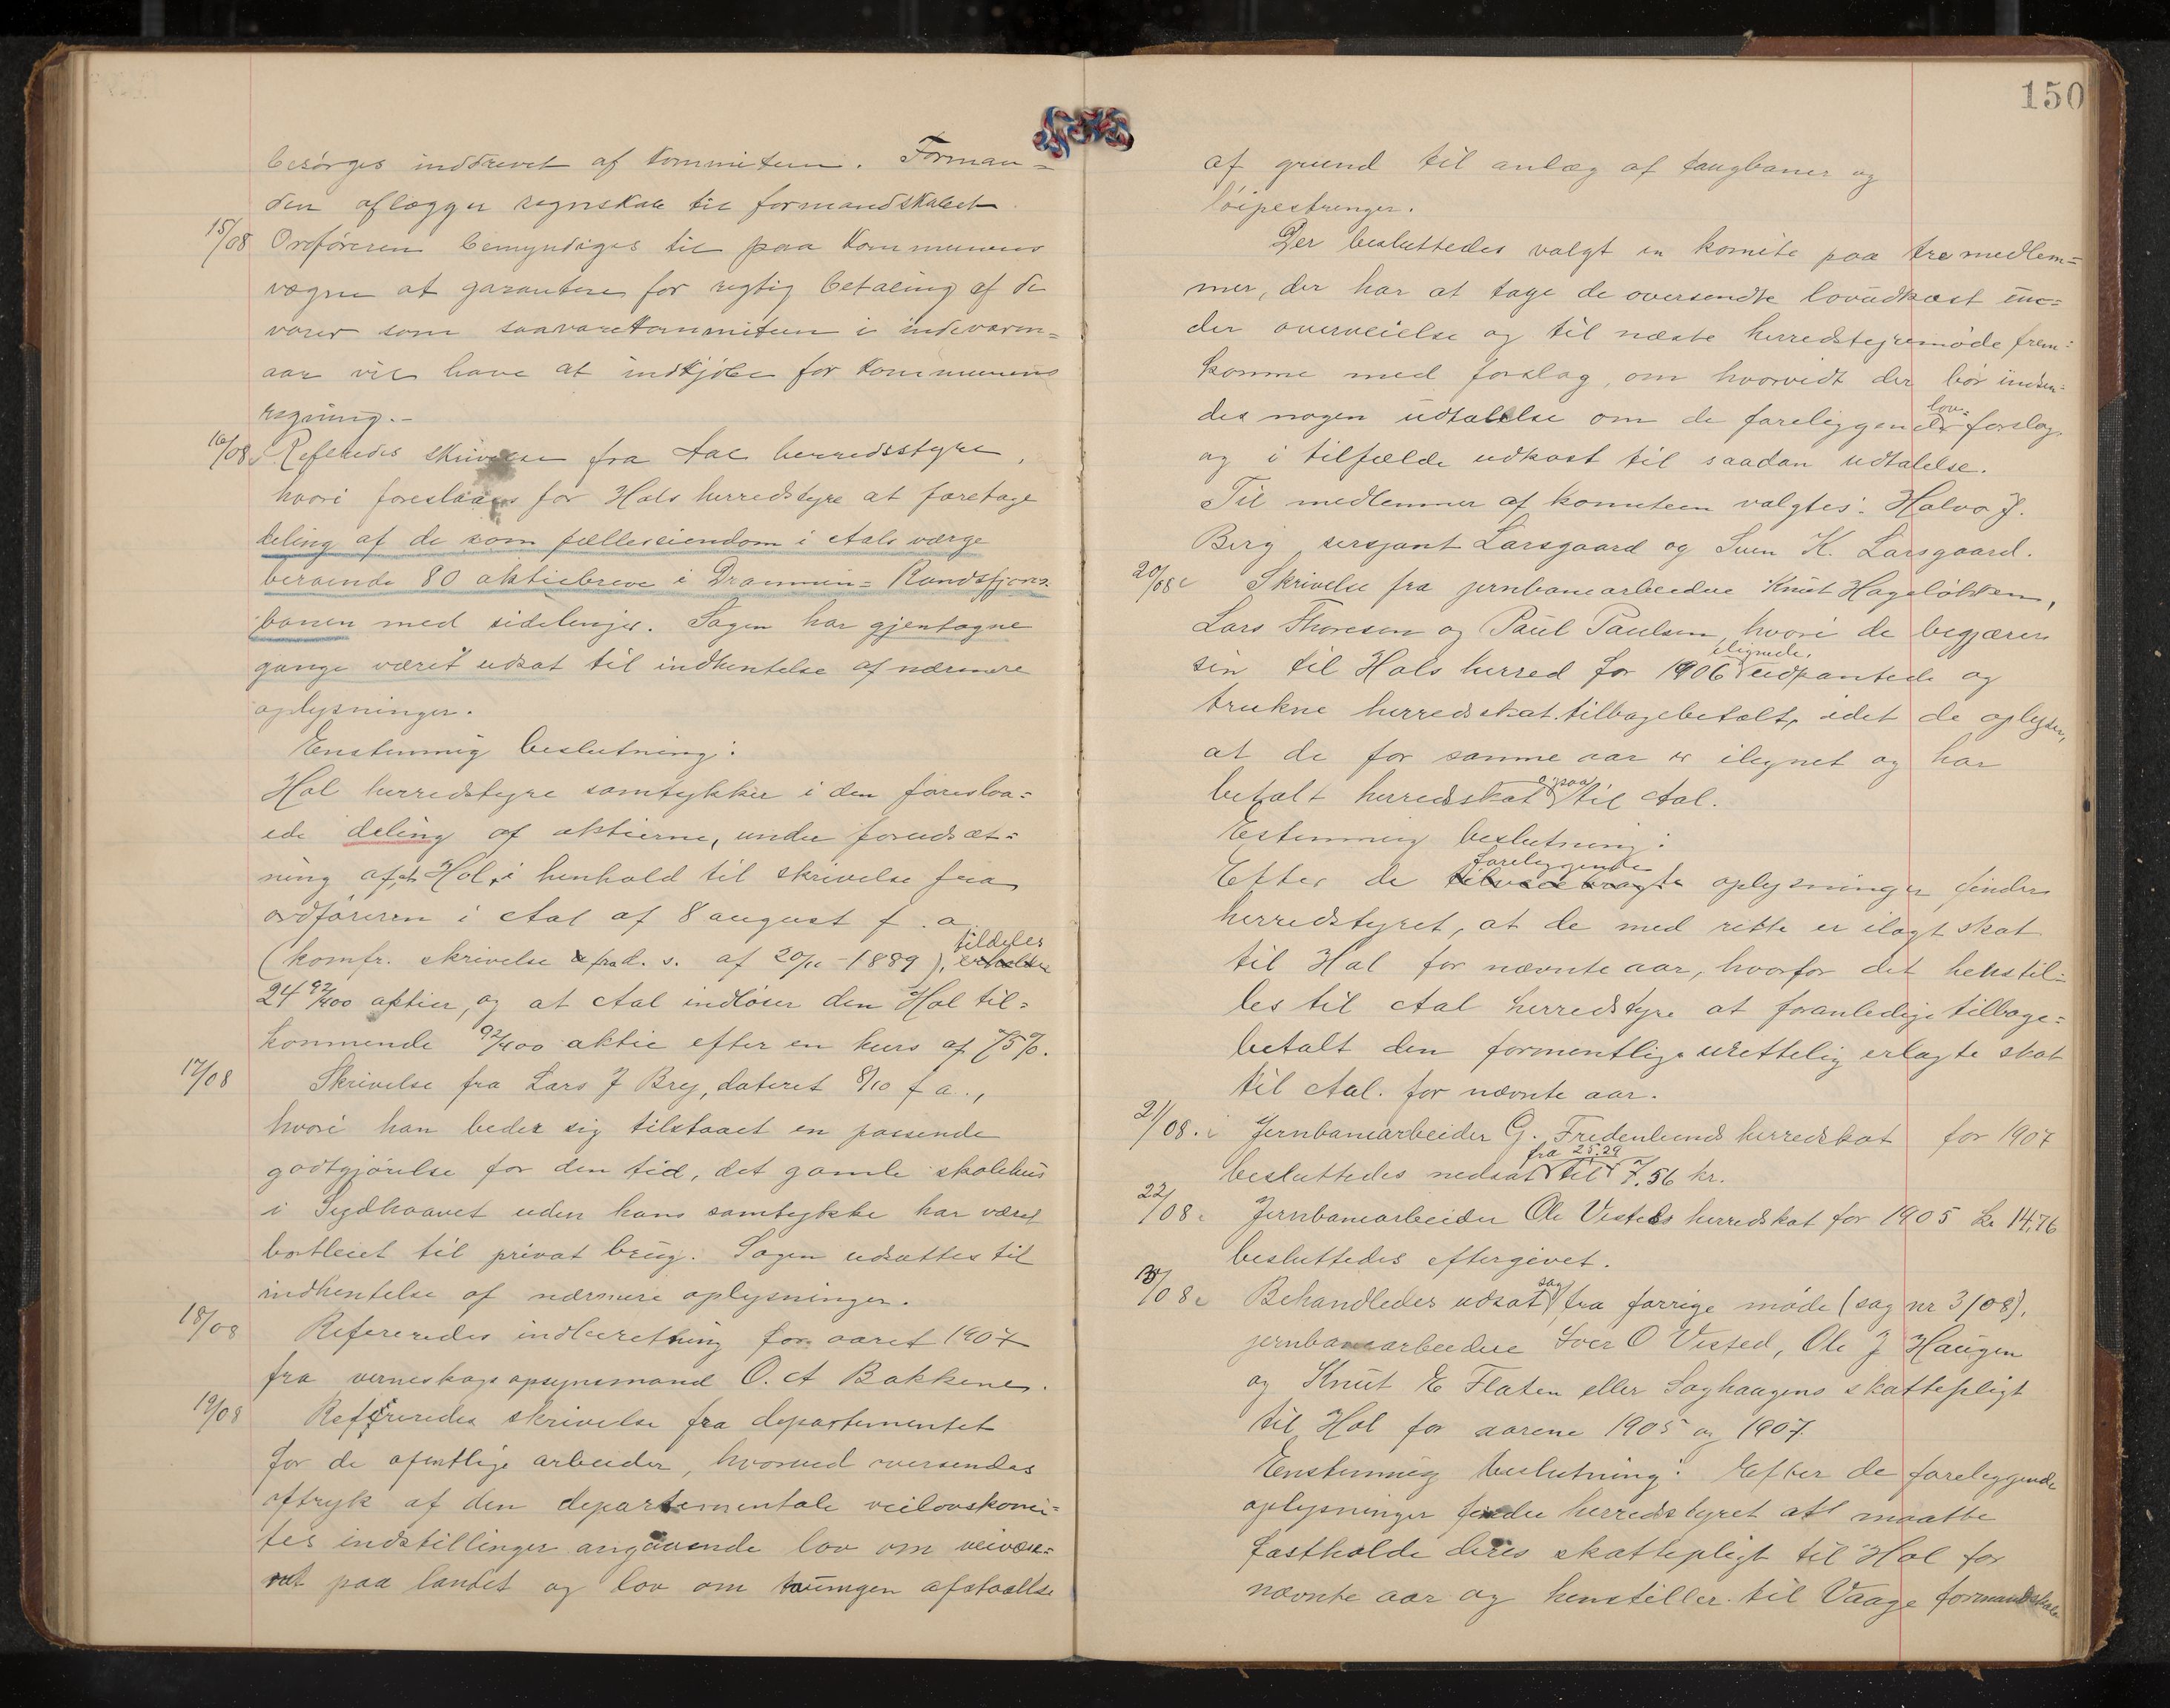 besörges inddrevet af kommiteen. Forman=
den aflægger regnskab til formandskabet.
15/08 Ordföreren bemyndiges til paa kommunens
vegne at garantere for rigtig betaling af de
varer som saavarekommiteen i indeværen=
aar vil have at indkjöbe for kommunens
regning.-
16/08 Referedes skrivelse fra Aal herredsstyre,
hvori foreslaaes for Hols herredstyre at foretage
deling af de som fælleseiendom i Aals værge
beroende 80 aktiebreve i Drammen= Randsfjords
banen med sidelinjer. Sagen har gjentagne
gange været udsat til indhentelse af nærmere
oplysninger.
Enstemmig beslutning:
Hol herredstyre samtykker i den foresloa=
ede deling af aktierne, under forudsæt=
ning af, at Hol, i henhold til skrivelse fra
ordföreren i Aal af 8 august f. a.
tildeles
(komfr. skrivelse fra d. s. af 20/12 -1889), erholder
24 92/400 aktier, og at Aal indlöser den Hol til=
kommende 92/400 aktie efter en kurs af 75%.
17/08 Skrivelse fra Lars J Brey, dateret 8/10 f a.,
hvori han beder sig tilstaaet en passende
godtgjörelse for den tid, det gamle skolehus
i Sydhaavet uden hans samtykke har været
bortleiet til privat brug. Sagen udsattes til
indhentelse af nærmere oplysninger.
18/08 Refereredes indberetning for aaret 1907
fra verneskogs opsynsmand O. A Bakkene.
19/08 Refereredes skrivelse fra departementet
for de ofentlige arbeider, hvorved oversendes
aftryk af den departementale veilovskomi=
tes indstillinger angaaende lov om veivæse=
net paa landet og lov om tvungen afstaaelse
150
af grund til anlæg af taugbaner og
löipestrenger.
Der besluttedes valgt en komite paa tre medlem=
mer, der har at tage de oversendte lovudkast un=
der overveielse og til næste herredstyremöde frem=
komme med forslag, om hvorvidt der bör indsen=
lov=
des nogen udtalelse om de foreliggende forslag,
og i tilfælde udkast til saadan udtalelse.
Til medlemmer af komiteen valgtes: Halvo J.
Berg, sersjant Larsgaard og Sven K. Larsgaard.
20/08 Skrivelse fra jernbanearbeidere Knut Hagelökken,
Lars Thoresen og Paul Paulsen, hvori de begjærer
ilignede,
sin til Hols herred for 1906 udpantede og
trukne herredsskat tilbagebetalt, idet de oplyser,
at de for samme aar er ilignet og har
ogsaa
betalt herredsskat til Aal.
Estemmig beslutning:
foreliggende
Efter de tilveiebragte oplysninger finder
herredstyret, at de med rette er ilagt skat
til Hol for nævnte aar, hvorfor det henstil=
les til Aal herredstyre at foranledige tilbage=
betalt den formentlige urettelig erlagte skat
til Aal. for nævnte aar.
21/08. Jernbanearbeider G. Fredenlunds herredskat for 1907
fra 25,29
besluttedes nedsat til 7,56 kr.
22/08. Jernbanearbeider Ole Visteds herredskat for 1905 kr 14,76
besluttedes eftergivet.
sag
3/08. Behandledes udsat fra forrige möde (sag nr 3/08),
jernbanearbeidere Iver O Visted, Ole J Haugen
og Knut E Flaten eller Saghaugens skattepligt
til Hol for aarene 1905 og 1907.
Enstemmig beslutning: Efter de foreliggende
oplysninger finder herredstyret at maatte
fastholde deres skattepligt til Hol for
nævnte aar og henstiller til Vaage formandskab